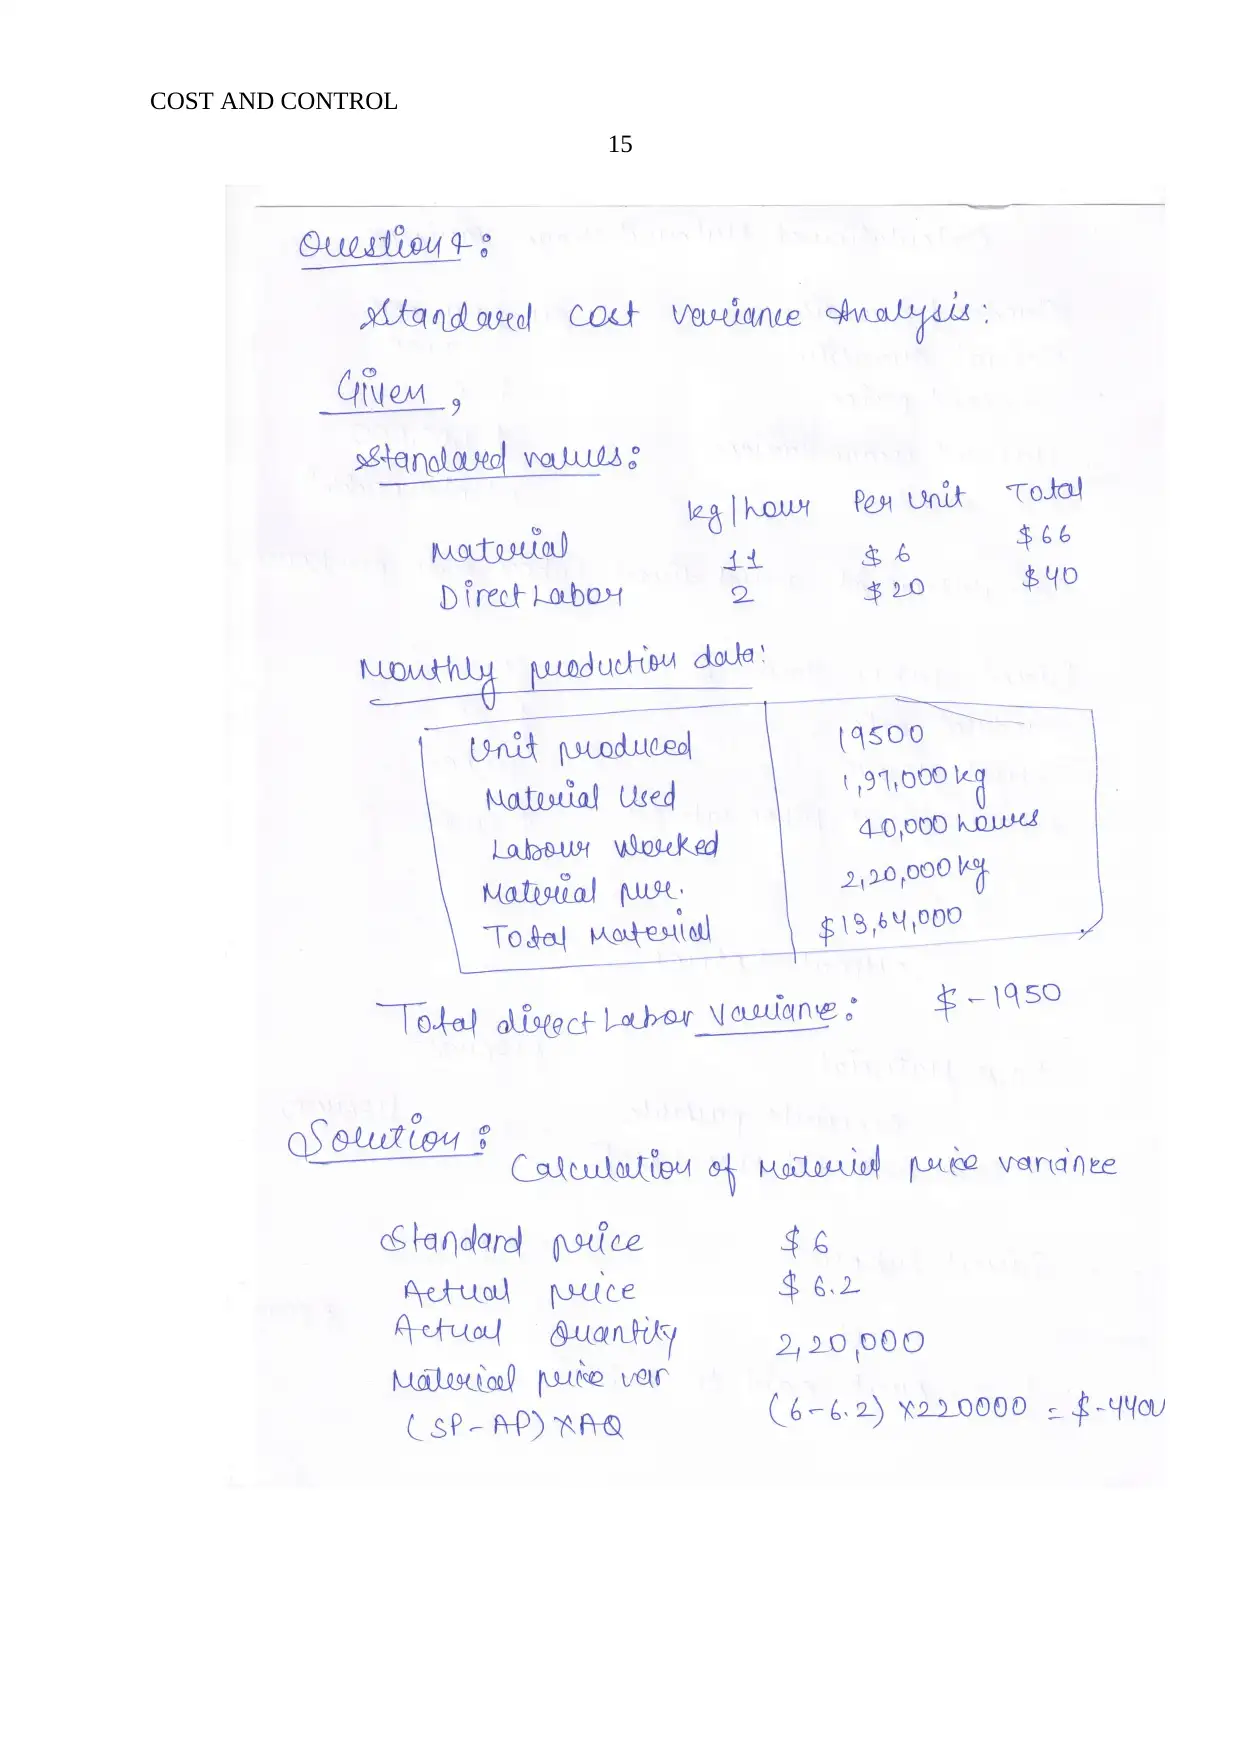 COST AND CONTROL
15
Question 4:
Standard cost variance Analysis:
Given,
Standard values:
kg/hour Per Unit Total
Material 11 $ 6 $ 66
Direct Labor 2 $ 20 $ 40
Monthly production data:
Unit produced 19500
Material Used 1,97,000 kg
Labour Worked 40,000 hours
Material pur. 2,20,000 kg
Total Material $13,64,000
Total direct Labor Variance: $ -1950
Solution:
Calculation of Material price variance
Standard price $ 6
Actual price $ 6.2
Actual Quantity 2,20,000
Material price var
(SP - AP) X AQ (6-6.2) X220000 = $-4400